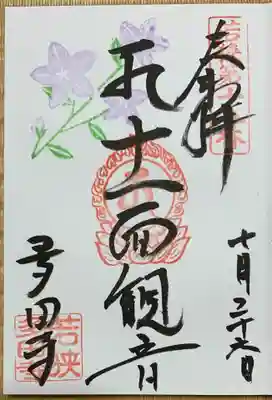 奉拝
十月二十六日
十一面観音
多田寺
若狭
多田寺